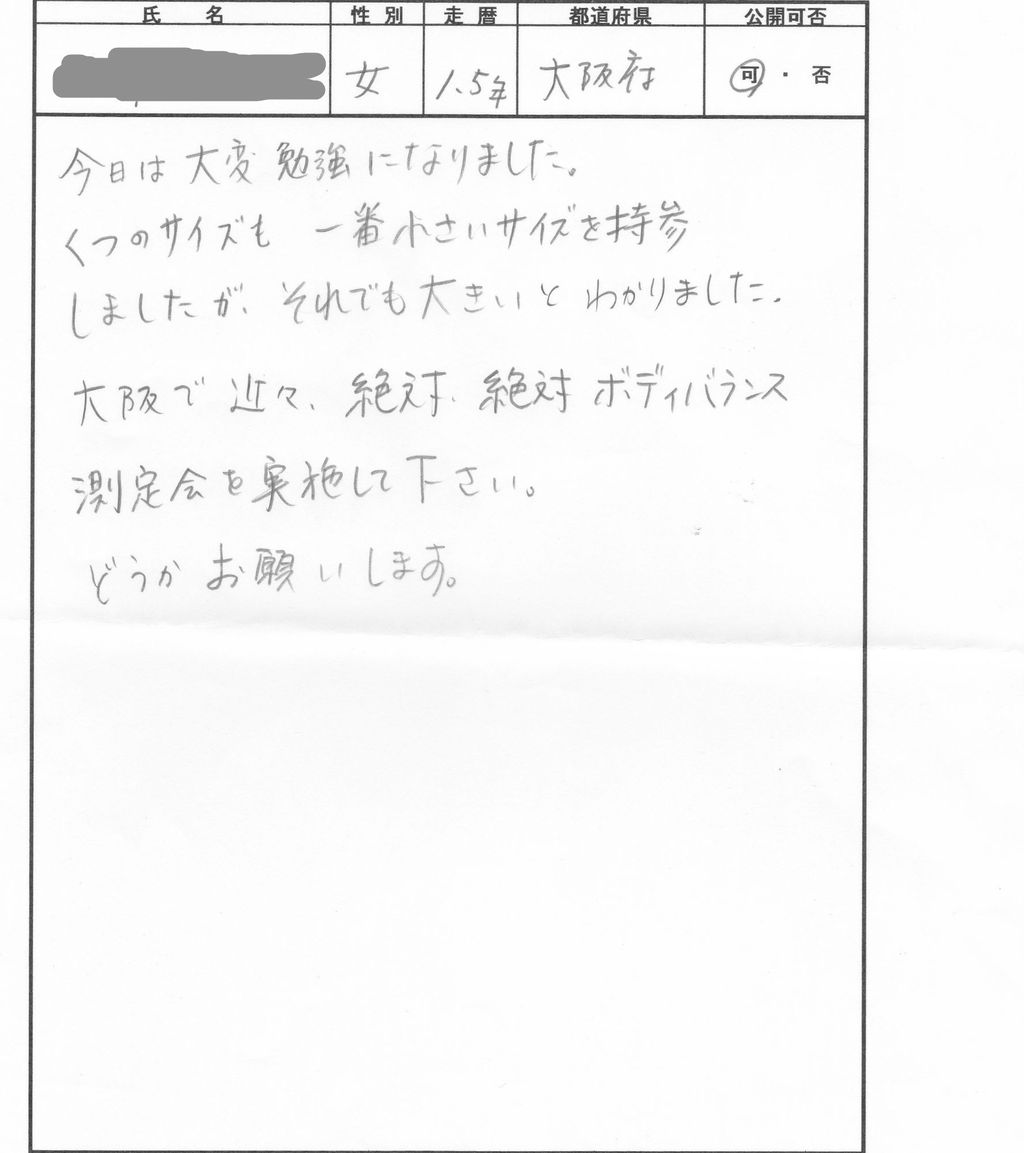 氏 名 性別 走暦 都道府県 公開可否
女 1.5年 大阪府 可・否
今日は大変勉強になりました。
くつのサイズも 一番小さいサイズを持参
しましたが、それでも大きいとわかりました。
大阪で近々、絶対、絶対ボディバランス
測定会を実施して下さい。
どうかお願いします。